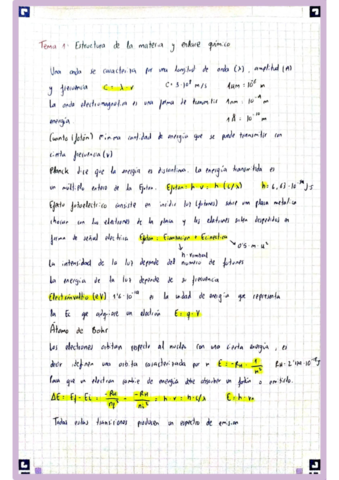 Tema 1: Estructura de la materia y enlace químico
Una onda se caracteriza por una longitud de onda (λ), amplitud (A)
y frecuencia C = λ · ν C = 3·10⁸ m/s
La onda electromagnética es una forma de transmitir
energía
Cuanto (fotón) mínima cantidad de energía que se puede transmitir con
cierta frecuencia (ν)
Planck dice que la energía es discontinua. La energía transmitida es
un múltiplo entero de la Efotón. Efotón = h · ν = h (c/λ)
Efecto fotoeléctrico consiste en incidir luz (fotones) sobre una placa metálica
chocan con los electrones de la placa y los electrones salen despedidos en
forma de señal eléctrica Efotón = Eionización + Ecinética
0'5 · m · v²
La intensidad de la luz depende del número de fotones
La energía de la luz depende de su frecuencia
Electronvoltio (eV) es la unidad de energía que representa
la Ec que adquiere un electrón E = q · V
Átomo de Bohr
Los electrones orbitan respecto al núcleo con una cierta energía, es
decir, definen una órbita caracterizada por n
Para que un electrón cambie de energía debe absorber un fotón o emitirlo.
ΔE = Ef - Ei = h · ν = h · c/λ
Todas estas transiciones producen un espectro de emisión